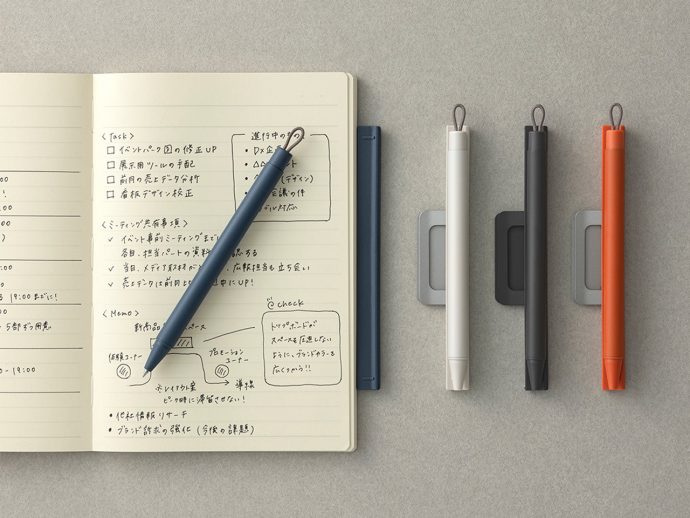 :00
!
:00
:00
)
19:00までに!
5部ずつ用意
- 19:00
<Task>
□ イベントパーク図の修正UP
□ 展示用ツールの手配
□ 前月の売上データ分析
□ 看板デザイン校正
進行中のもの
• DX企
• △△ ント
(デザイン)
会議の件
デル対応
<ミーティング共有事項>
✓ イベント事前ミーティングまでに
各自、担当パートの資料 する
✓ 当日、メディア取材が 、広報担当も立ち会い
✓ 売上データは前月比 日中にUP!
<Memo>
新商品 スペース
体験コーナー
プロモーションコーナー
導線
※レイアウト案
ピーク時に滞留させない!
• 他社情報リサーチ
• ブランド訴求の強化 (今後の課題)
check
トリプボードが
スペースを圧迫しない
ように、ブランドカラーを
広くつかう!!